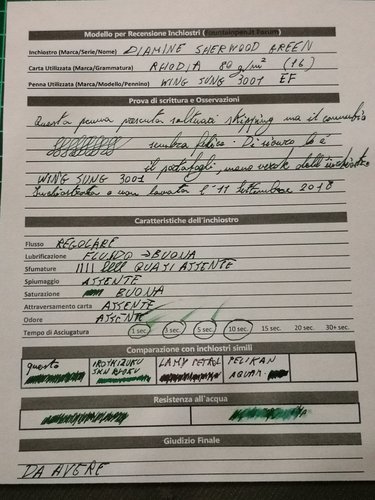 Modello per Recensione Inchiostri (fountainpen.it Forum)
Inchiostro (Marca/Serie/Nome) DIAMINE SHERWOOD GREEN
Carta Utilizzata (Marca/Grammatura) RHODIA 80 g/m² (16)
Penna Utilizzata (Marca/Modello/Pennino) WING SUNG 3001 EF
Prova di scrittura e Osservazioni
Questa penna presenta saltuari skipping ma il connubio
sembra felice. Di sicuro lo è
il portafogli, meno verde dell'inchiostro
WING SUNG 3001
Inchiostrata e non lavata l'11 settembre 2018
Caratteristiche dell'inchiostro
Flusso REGOLARE
Lubrificazione FLUIDO → BUONA
Sfumature QUASI ASSENTE
Spiumaggio ASSENTE
Saturazione BUONA
Attraversamento carta ASSENTE
Odore ASSENTE
Tempo di Asciugatura 1 sec. 3 sec. 5 sec. 10 sec. 15 sec. 20 sec. 30+ sec.
Comparazione con inchiostri simili
questo IROSHIZUKU LAMY PETROL PELIKAN
SHIN RYOKU AQUAM.
Resistenza all'acqua
Giudizio Finale
DA AVERE